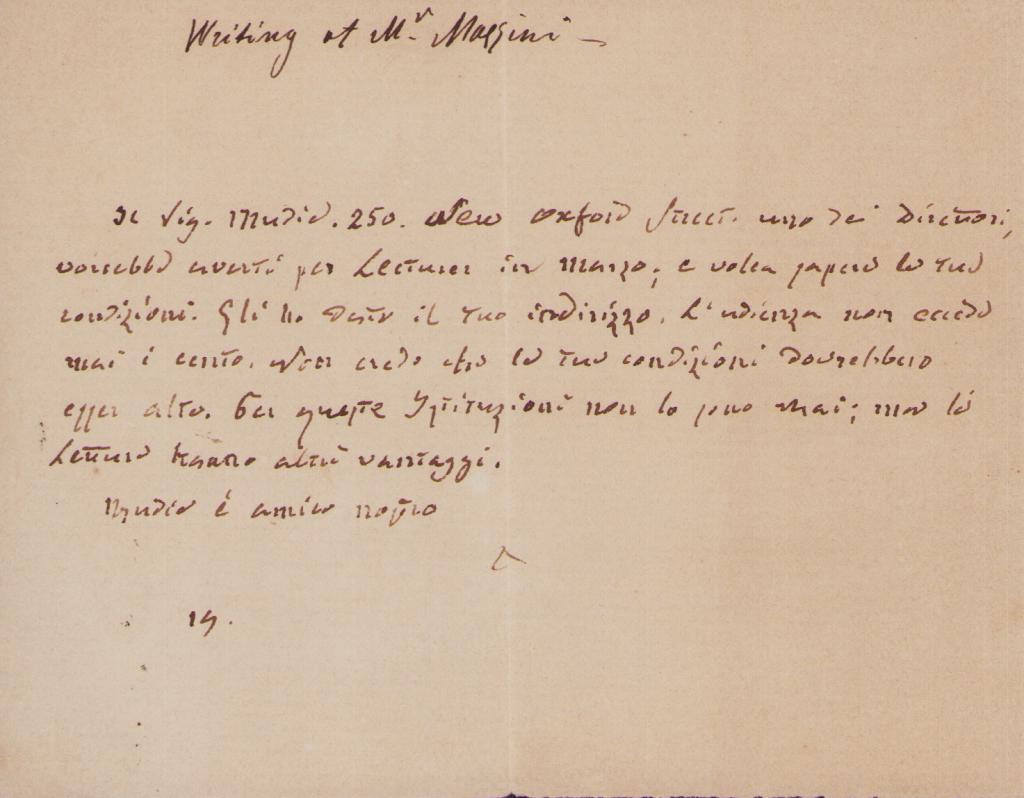 Writing of Mr. Mazzini —
Il Sig. Mudie. 250. New Oxford Street. uno dei Direttori,
vorrebbe averti per Lectures in marzo; e volea sapere le tue
condizioni. Gli ho dato il tuo indirizzo. L'udienza non eccede
mai i cento. Non credo che le tue condizioni dovrebbero
esser alte. Per queste Istituzioni non lo puo mai; ma le
Letture hanno altri vantaggi.
Mudie è amico nostro
19.